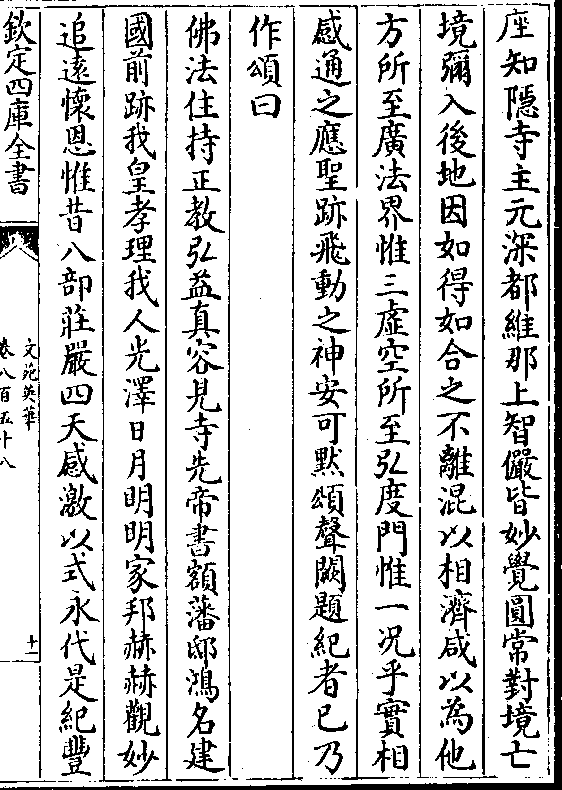 座知隱寺主元深都維那上智儼皆妙覺圓常對境亡
境彌入後地因如得如合之不離混以相濟咸以為他
方所至廣法界惟三虛空所至弘度門惟一况乎實相
感通之應聖跡飛動之神安可黙頌聲闕題紀者已乃
作頌曰
佛法住持正教弘益真容見寺先帝書額藩邸鴻名建
國前跡我皇孝理我人光澤日月明明家邦赫赫觀妙
追逺懷恩惟昔八部莊嚴四天感激以式永代是紀豐
欽定四庫全書
文苑英華
卷八百五十八
十一